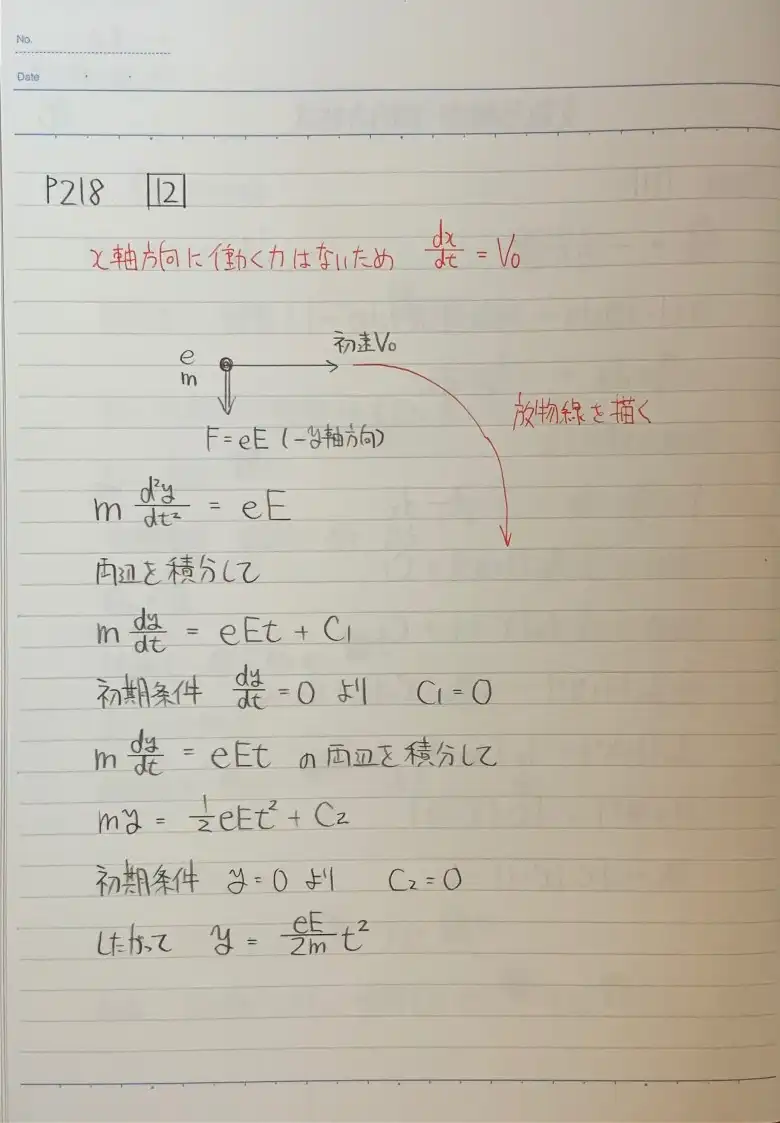 No.
Date
P218 12
x軸方向に働く力はないため dx/dt = V₀
初速V₀
e
m
放物線を描く
F = eE (-y軸方向)
m d²y/dt² = eE
両辺を積分して
m dy/dt = eEt + C₁
初期条件 dy/dt = 0 より C₁ = 0
m dy/dt = eEt の両辺を積分して
my = 1/2 eEt² + C₂
初期条件 y = 0 より C₂ = 0
したがって y = eE/2m t²